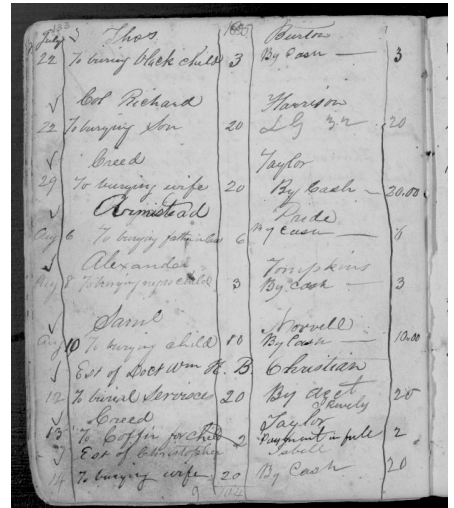 July Thos Burton
22 To buring black child 3 By Cash — 3
Col Richard Harrison
22 To burying Son 20 20
Creed Taylor
29 To burying wife 20 By Cash — 20.00
Armistead Pride
Aug 6 To burying father in law 6 By Cash —
Alexander Tompkins
Aug 8 To burying negro child 3 By Cash — 3
Saml Norvell
Aug 10 To burying child 10 By Cash — 10.00
Est of Doct Wm H. B. Christian
12 To burial Services 20 By acct 20
Creed Taylor
13 To Coffin for child 2 Payment in full 2
Est of Christopher
14 To burying wife 20 By Cash 20